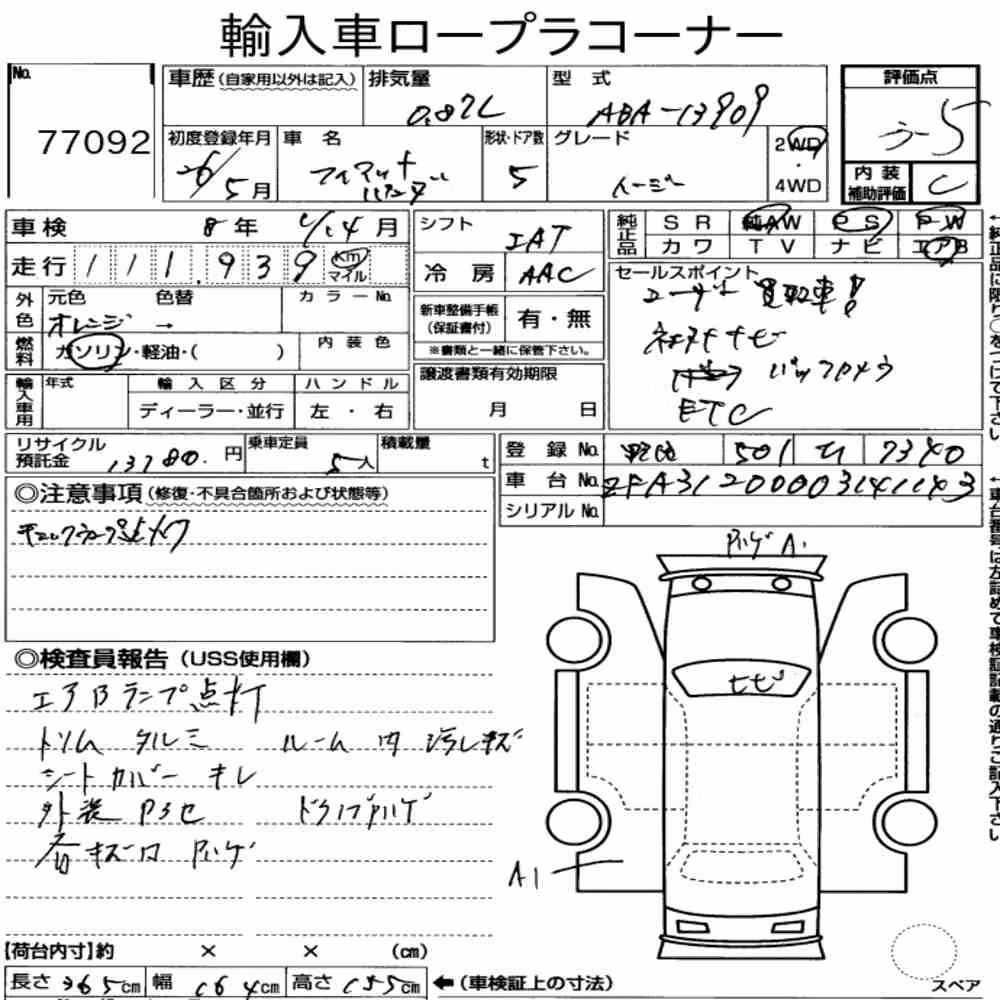 輸入車ロープラコーナー
No. 77092
車歴 (自家用以外は記入)
排気量 0.87L
型式 ABA-13909
評価点 ラ-5
初度登録年月 26/5月
車名 フィアット パンダ
形状・ドア数 5
グレード イージー
2WD・4WD
内装補助評価 C
車検 8年 4月
走行 111,939 Km マイル
シフト IAT
冷房 AAC
純正品 SR 純AW PS PW
カワ TV ナビ エアB
外色 元色 オレンジ → 色替 カラーNo.
燃料 ガソリン・軽油・( ) 内装色
新車整備手帳(保証書付) 有・無
※書類と一緒に保管下さい。
セールスポイント
ユーザー買取車!
社外ナビ
バックカメラ
ETC
輸入車用 年式 輸入区分 ディーラー・並行 ハンドル 左・右
譲渡書類有効期限 月 日
リサイクル預託金 13780.円
乗車定員 5人
積載量 t
登録No. 501 7340
車台No. ZFA31200003141143
シリアルNo.
◎注意事項 (修復・不具合箇所および状態等)
◎検査員報告 (USS使用欄)
エアBランプ点灯
トリム タルミ ルーム内 汚レキズ
シートカバー キレ
外装 アセ ドライブハゲ
各キズ凹 Pハゲ
PハゲA1
ヒビ
A1
【荷台内寸】約 × × (cm)
長さ 365cm 幅 164cm 高さ 155cm ←(車検証上の寸法)
スペア
←純正品に限り○をつけて下さい。
←車台番号は左詰めで車検証記載の通りご記入下さい